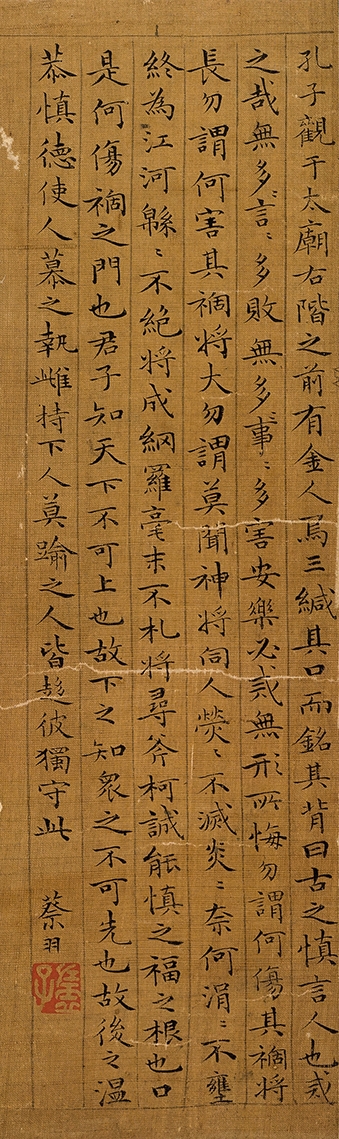 孔子觀于太廟右階之前有金人焉三緘其口而銘其背曰古之慎言人也戒
之哉無多言〻多敗無多事〻多害安樂必戒無形所悔勿謂何傷其禍將
長勿謂何害其禍將大勿謂莫聞神將伺人熒〻不滅炎〻奈何涓〻不壅
終為江河緜〻不絕將成網羅毫末不札將尋斧柯誠能慎之福之根也口
是何傷禍之門也君子知天下不可上也故下之知衆之不可先也故後之温
恭慎德使人慕之執雌持下人莫踰之人皆趍彼獨守此 蔡羽